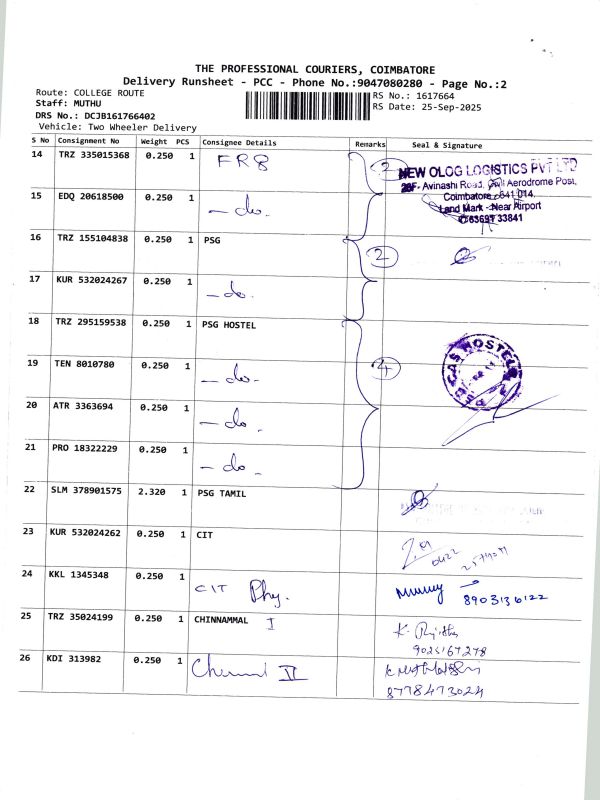 THE PROFESSIONAL COURIERS, COIMBATORE
Delivery Runsheet - PCC - Phone No.:9047080280 - Page No.:2
Route: COLLEGE ROUTE
Staff: MUTHU
DRS No.: DCJB161766402
Vehicle: Two Wheeler Delivery
RS No.: 1617664
RS Date: 25-Sep-2025
S No Consignment No Weight PCS Consignee Details Remarks Seal & Signature
14 TRZ 335015368 0.250 1 FR8 2
NEW OLOG LOGISTICS PVT LTD
Avinashi Road, Civil Aerodrome Post,
Coimbatore - 641 014.
Land Mark - Near Airport
63697 33841
15 EDQ 20618500 0.250 1 - do.
16 TRZ 155104838 0.250 1 PSG 2
17 KUR 532024267 0.250 1 - do.
18 TRZ 295159538 0.250 1 PSG HOSTEL
19 TEN 8010780 0.250 1 - do - 4
CAS HOSTELS
20 ATR 3363694 0.250 1 - do.
21 PRO 18322229 0.250 1 - do -
22 SLM 378901575 2.320 1 PSG TAMIL
23 KUR 532024262 0.250 1 CIT
0422
24 KKL 1345348 0.250 1 CIT Phy.
8903136122
25 TRZ 35024199 0.250 1 CHINNAMMAL I
26 KDI 313982 0.250 1 II
8778473024